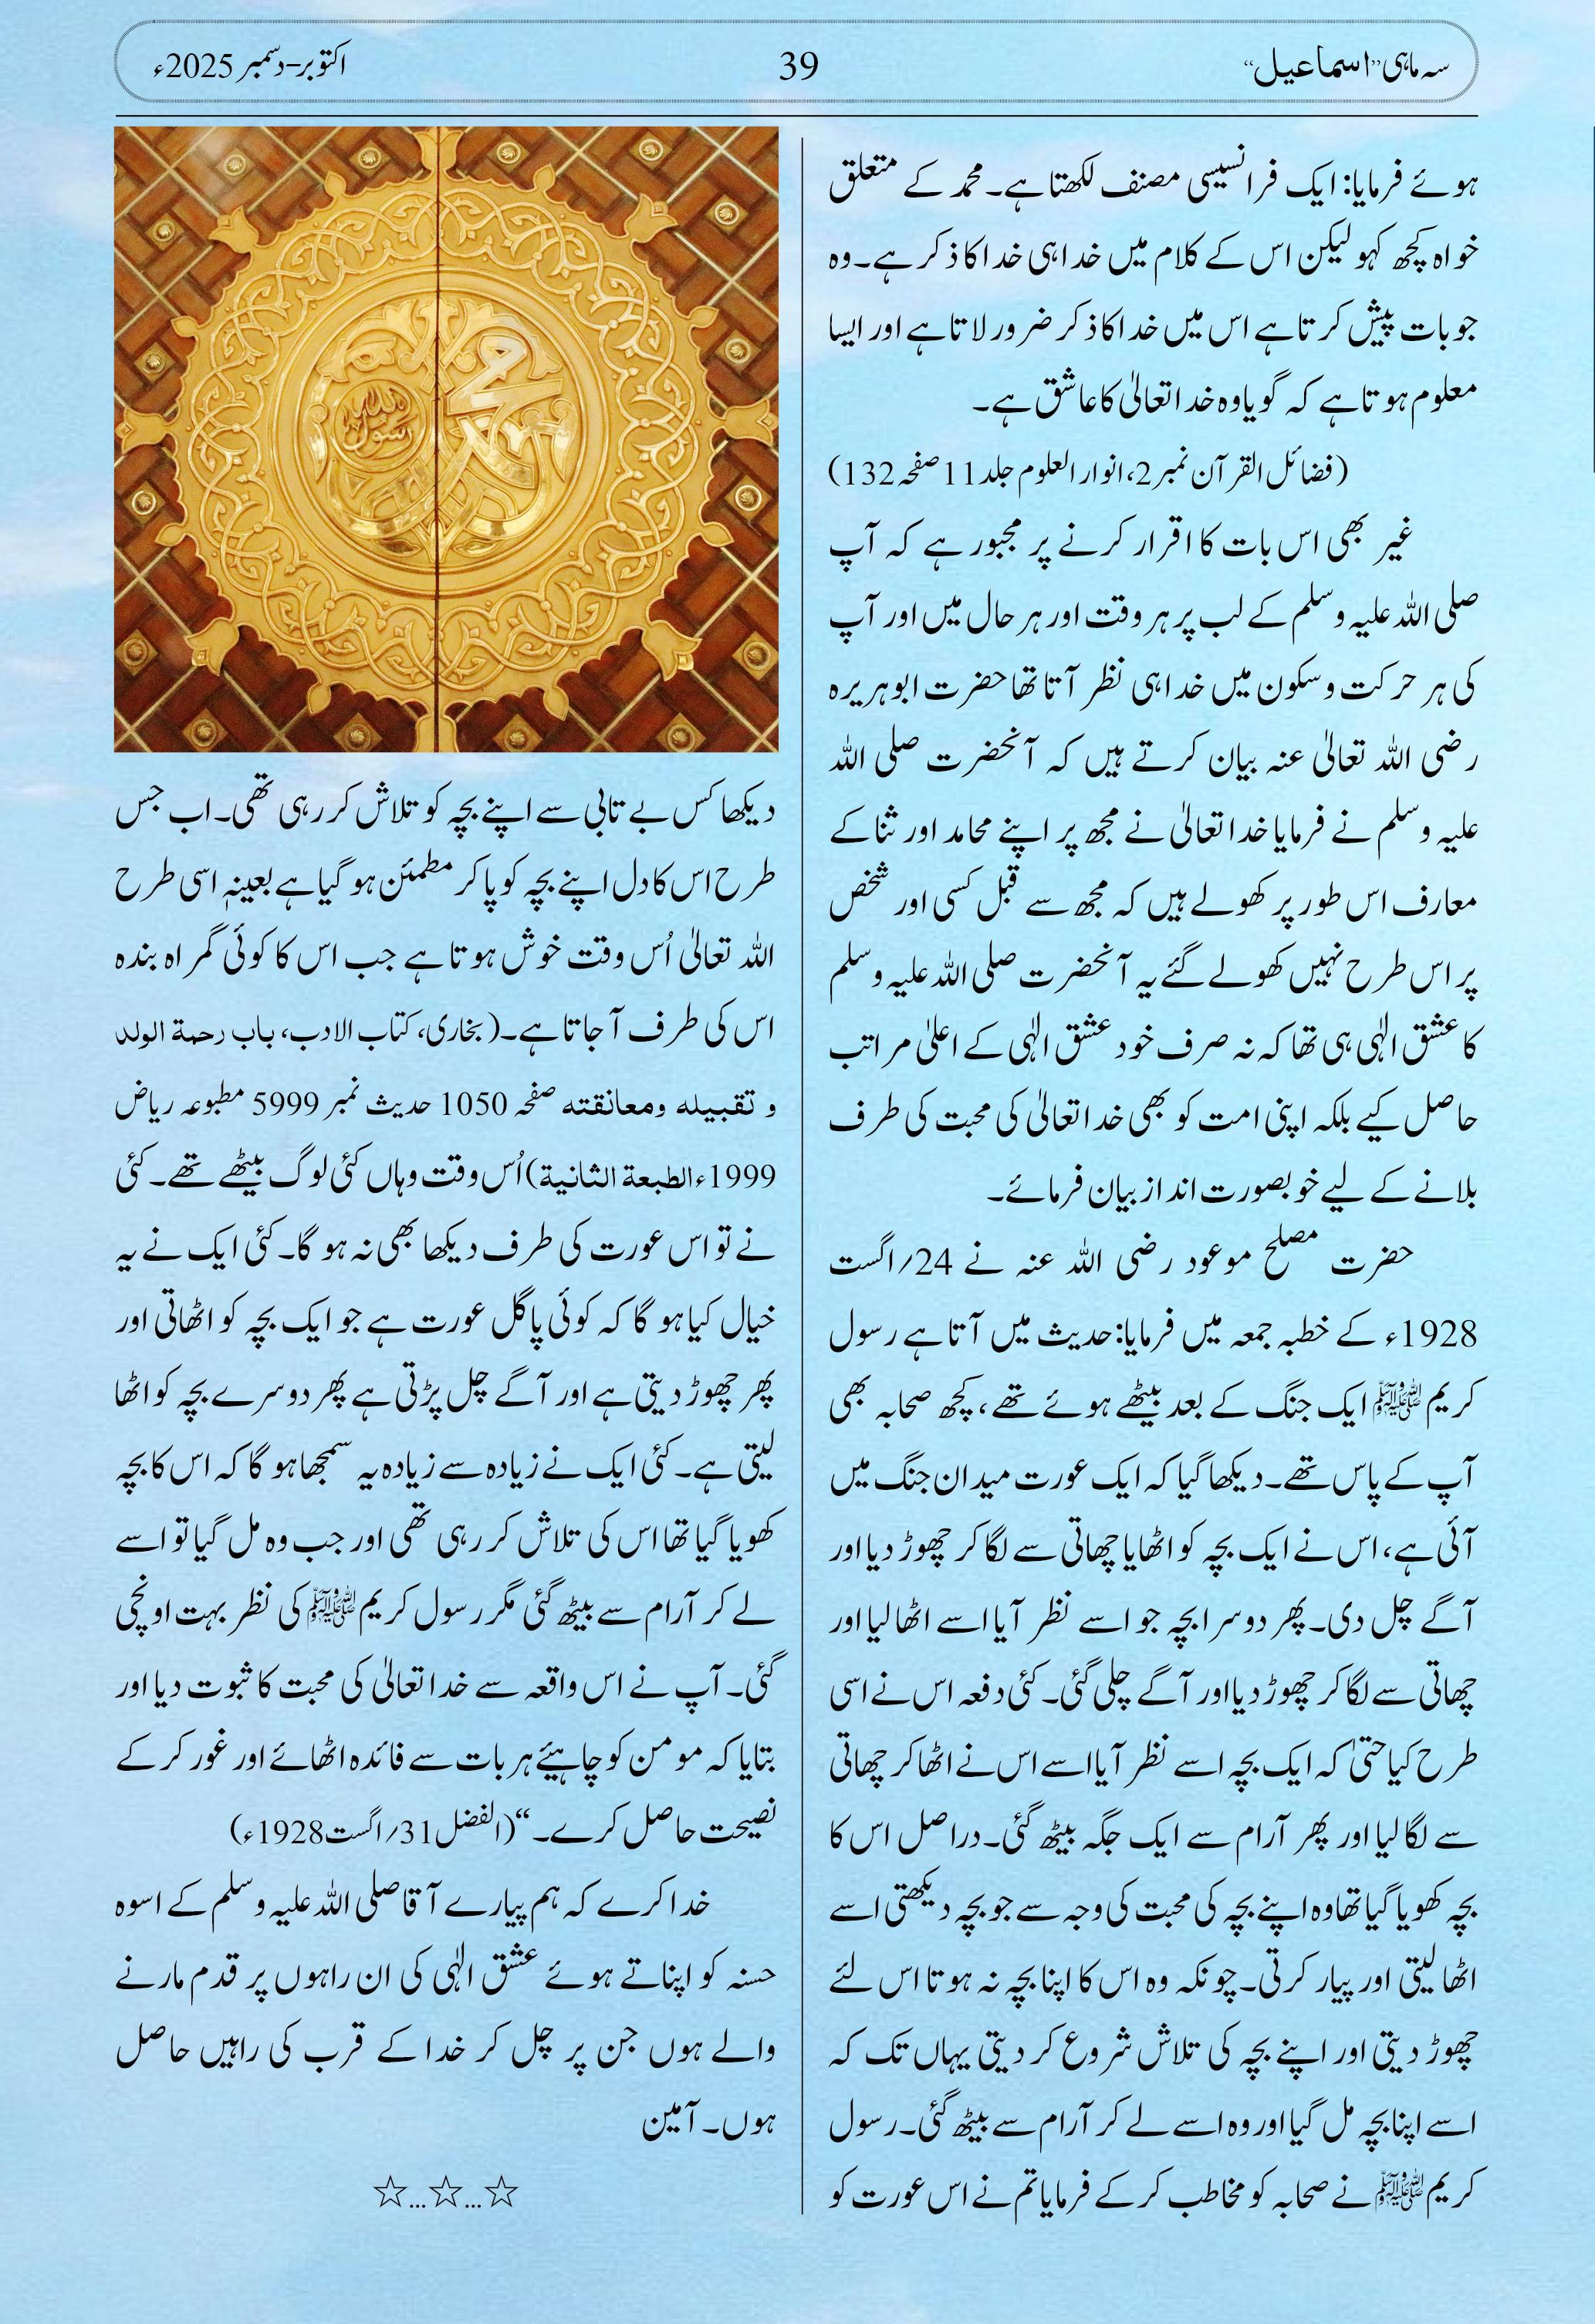 سہ ماہی ”اسماعیل“
39
اکتوبر–دسمبر 2025ء
ہوئے فرمایا: ایک فرانسیسی مصنف لکھتا ہے۔ محمد کے متعلق
خواہ کچھ کہو لیکن اس کے کلام میں خدا ہی خدا کا ذکر ہے۔ وہ
جو بات پیش کرتا ہے اس میں خدا کا ذکر ضرور لاتا ہے اور ایسا
معلوم ہوتا ہے کہ گویا وہ خدا تعالیٰ کا عاشق ہے۔
(فضائل القرآن نمبر 2، انوار العلوم جلد 11 صفحہ 132)
غیر بھی اس بات کا اقرار کرنے پر مجبور ہے کہ آپ
صلی اللہ علیہ وسلم کے لب پر ہر وقت اور ہر حال میں اور آپ
کی ہر حرکت و سکون میں خدا ہی نظر آتا تھا حضرت ابو ہریرہ
رضی اللہ تعالیٰ عنہ بیان کرتے ہیں کہ آنحضرت صلی اللہ
علیہ وسلم نے فرمایا خدا تعالیٰ نے مجھ پر اپنے محامد اور ثنا کے
معارف اس طور پر کھولے ہیں کہ مجھ سے قبل کسی اور شخص
پر اس طرح نہیں کھولے گئے یہ آنحضرت صلی اللہ علیہ وسلم
کا عشق الٰہی ہی تھا کہ نہ صرف خود عشق الٰہی کے اعلیٰ مراتب
حاصل کیے بلکہ اپنی امت کو بھی خدا تعالیٰ کی محبت کی طرف
بلانے کے لیے خوبصورت انداز بیان فرمائے۔
حضرت مصلح موعود رضی اللہ عنہ نے 24/اگست
1928ء کے خطبہ جمعہ میں فرمایا: حدیث میں آتا ہے رسول
کریم ﷺ ایک جنگ کے بعد بیٹھے ہوئے تھے، کچھ صحابہ بھی
آپ کے پاس تھے۔ دیکھا گیا کہ ایک عورت میدان جنگ میں
آئی ہے، اس نے ایک بچہ کو اٹھایا چھاتی سے لگا کر چھوڑ دیا اور
آگے چل دی۔ پھر دوسرا بچہ جو اسے نظر آیا اسے اٹھا لیا اور
چھاتی سے لگا کر چھوڑ دیا اور آگے چلی گئی۔ کئی دفعہ اس نے اسی
طرح کیا حتیٰ کہ ایک بچہ اسے نظر آیا اسے اس نے اٹھا کر چھاتی
سے لگا لیا اور پھر آرام سے ایک جگہ بیٹھ گئی۔ دراصل اس کا
بچہ کھویا گیا تھا وہ اپنے بچہ کی محبت کی وجہ سے جو بچہ دیکھتی اسے
اٹھا لیتی اور پیار کرتی۔ چونکہ وہ اس کا اپنا بچہ نہ ہوتا اس لئے
چھوڑ دیتی اور اپنے بچہ کی تلاش شروع کر دیتی یہاں تک کہ
اسے اپنا بچہ مل گیا اور وہ اسے لے کر آرام سے بیٹھ گئی۔ رسول
کریم ﷺ نے صحابہ کو مخاطب کر کے فرمایا تم نے اس عورت کو
محمد
رسول الله
دیکھا کس بے تابی سے اپنے بچہ کو تلاش کر رہی تھی۔ اب جس
طرح اس کا دل اپنے بچہ کو پا کر مطمئن ہو گیا ہے بعینہٖ اسی طرح
اللہ تعالیٰ اُس وقت خوش ہوتا ہے جب اس کا کوئی گمراہ بندہ
اس کی طرف آ جاتا ہے۔ (بخاری، کتاب الادب، باب رحمة الولد
و تقبيله ومعانقته صفحہ 1050 حدیث نمبر 5999 مطبوعہ ریاض
1999ء الطبعة الثانية) اُس وقت وہاں کئی لوگ بیٹھے تھے۔ کئی
نے تو اس عورت کی طرف دیکھا بھی نہ ہو گا۔ کئی ایک نے یہ
خیال کیا ہو گا کہ کوئی پاگل عورت ہے جو ایک بچہ کو اٹھاتی اور
پھر چھوڑ دیتی ہے اور آگے چل پڑتی ہے پھر دوسرے بچہ کو اٹھا
لیتی ہے۔ کئی ایک نے زیادہ سے زیادہ یہ سمجھا ہو گا کہ اس کا بچہ
کھویا گیا تھا اس کی تلاش کر رہی تھی اور جب وہ مل گیا تو اسے
لے کر آرام سے بیٹھ گئی مگر رسول کریم ﷺ کی نظر بہت اونچی
گئی۔ آپ نے اس واقعہ سے خدا تعالیٰ کی محبت کا ثبوت دیا اور
بتایا کہ مومن کو چاہیئے ہر بات سے فائدہ اٹھائے اور غور کر کے
نصیحت حاصل کرے۔“ (الفضل 31/اگست 1928ء)
خدا کرے کہ ہم پیارے آقا صلی اللہ علیہ وسلم کے اسوہ
حسنہ کو اپناتے ہوئے عشق الٰہی کی ان راہوں پر قدم مارنے
والے ہوں جن پر چل کر خدا کے قرب کی راہیں حاصل
ہوں۔ آمین
☆...☆...☆